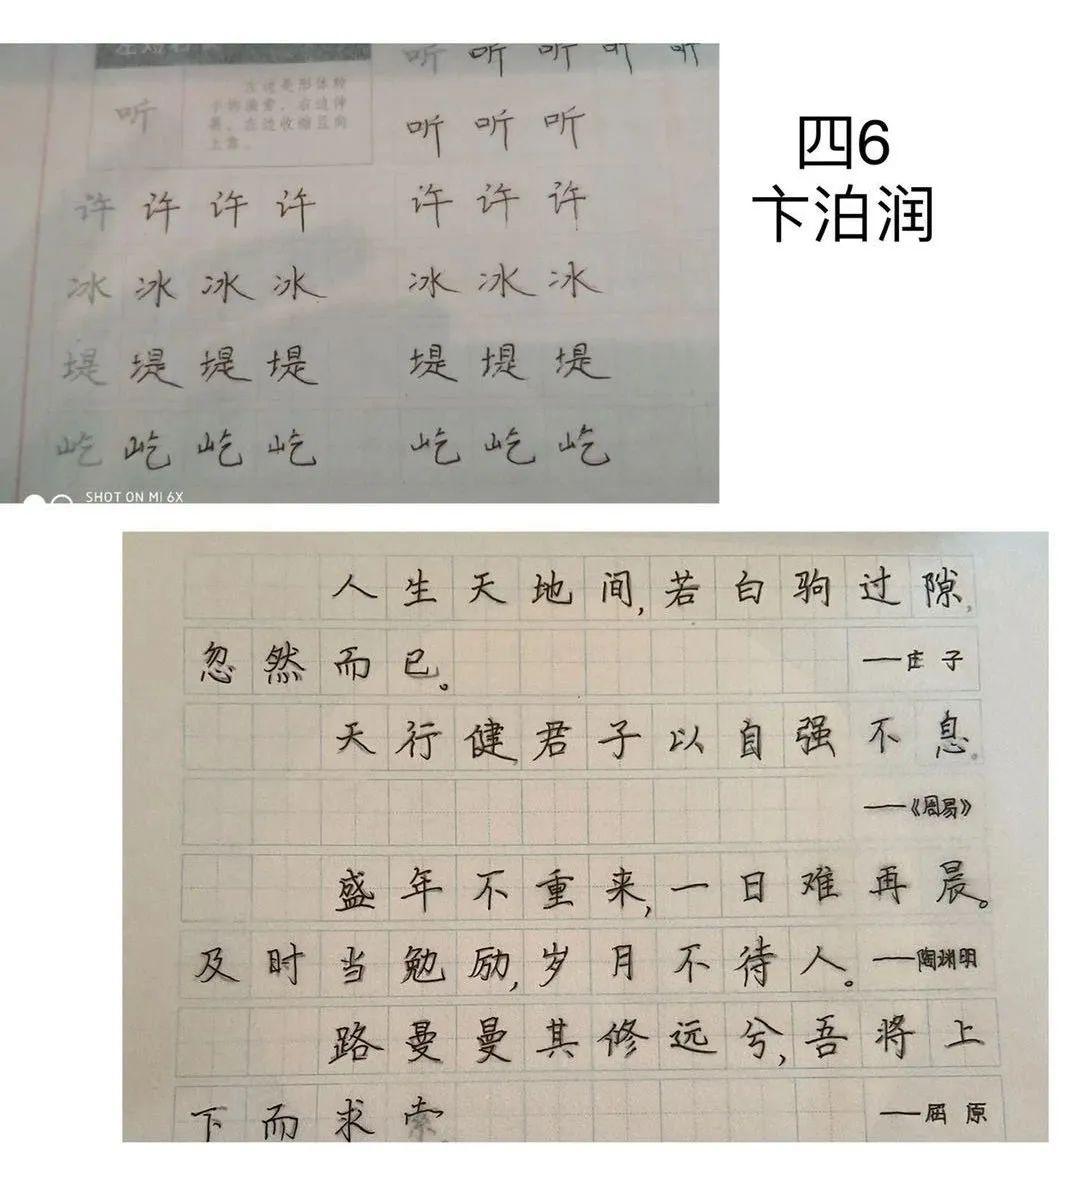 听 听 听 听 听
听
左边是形体较
上靠。
听 听 听
许 许 许 许 许 许 许
冰 冰 冰 冰 冰 冰 冰
堤 堤 堤 堤 堤 堤 堤
屹 屹 屹 屹 屹 屹 屹
SHOT ON MI 6X
四6
卞泊润
人生天地间,若白驹过隙,
忽然而已。 ——庄子
天行健君子以自强不息。
——《周易》
盛年不重来,一日难再晨。
及时当勉励,岁月不待人。——陶渊明
路曼曼其修远兮,吾将上
下而求索 ——屈原